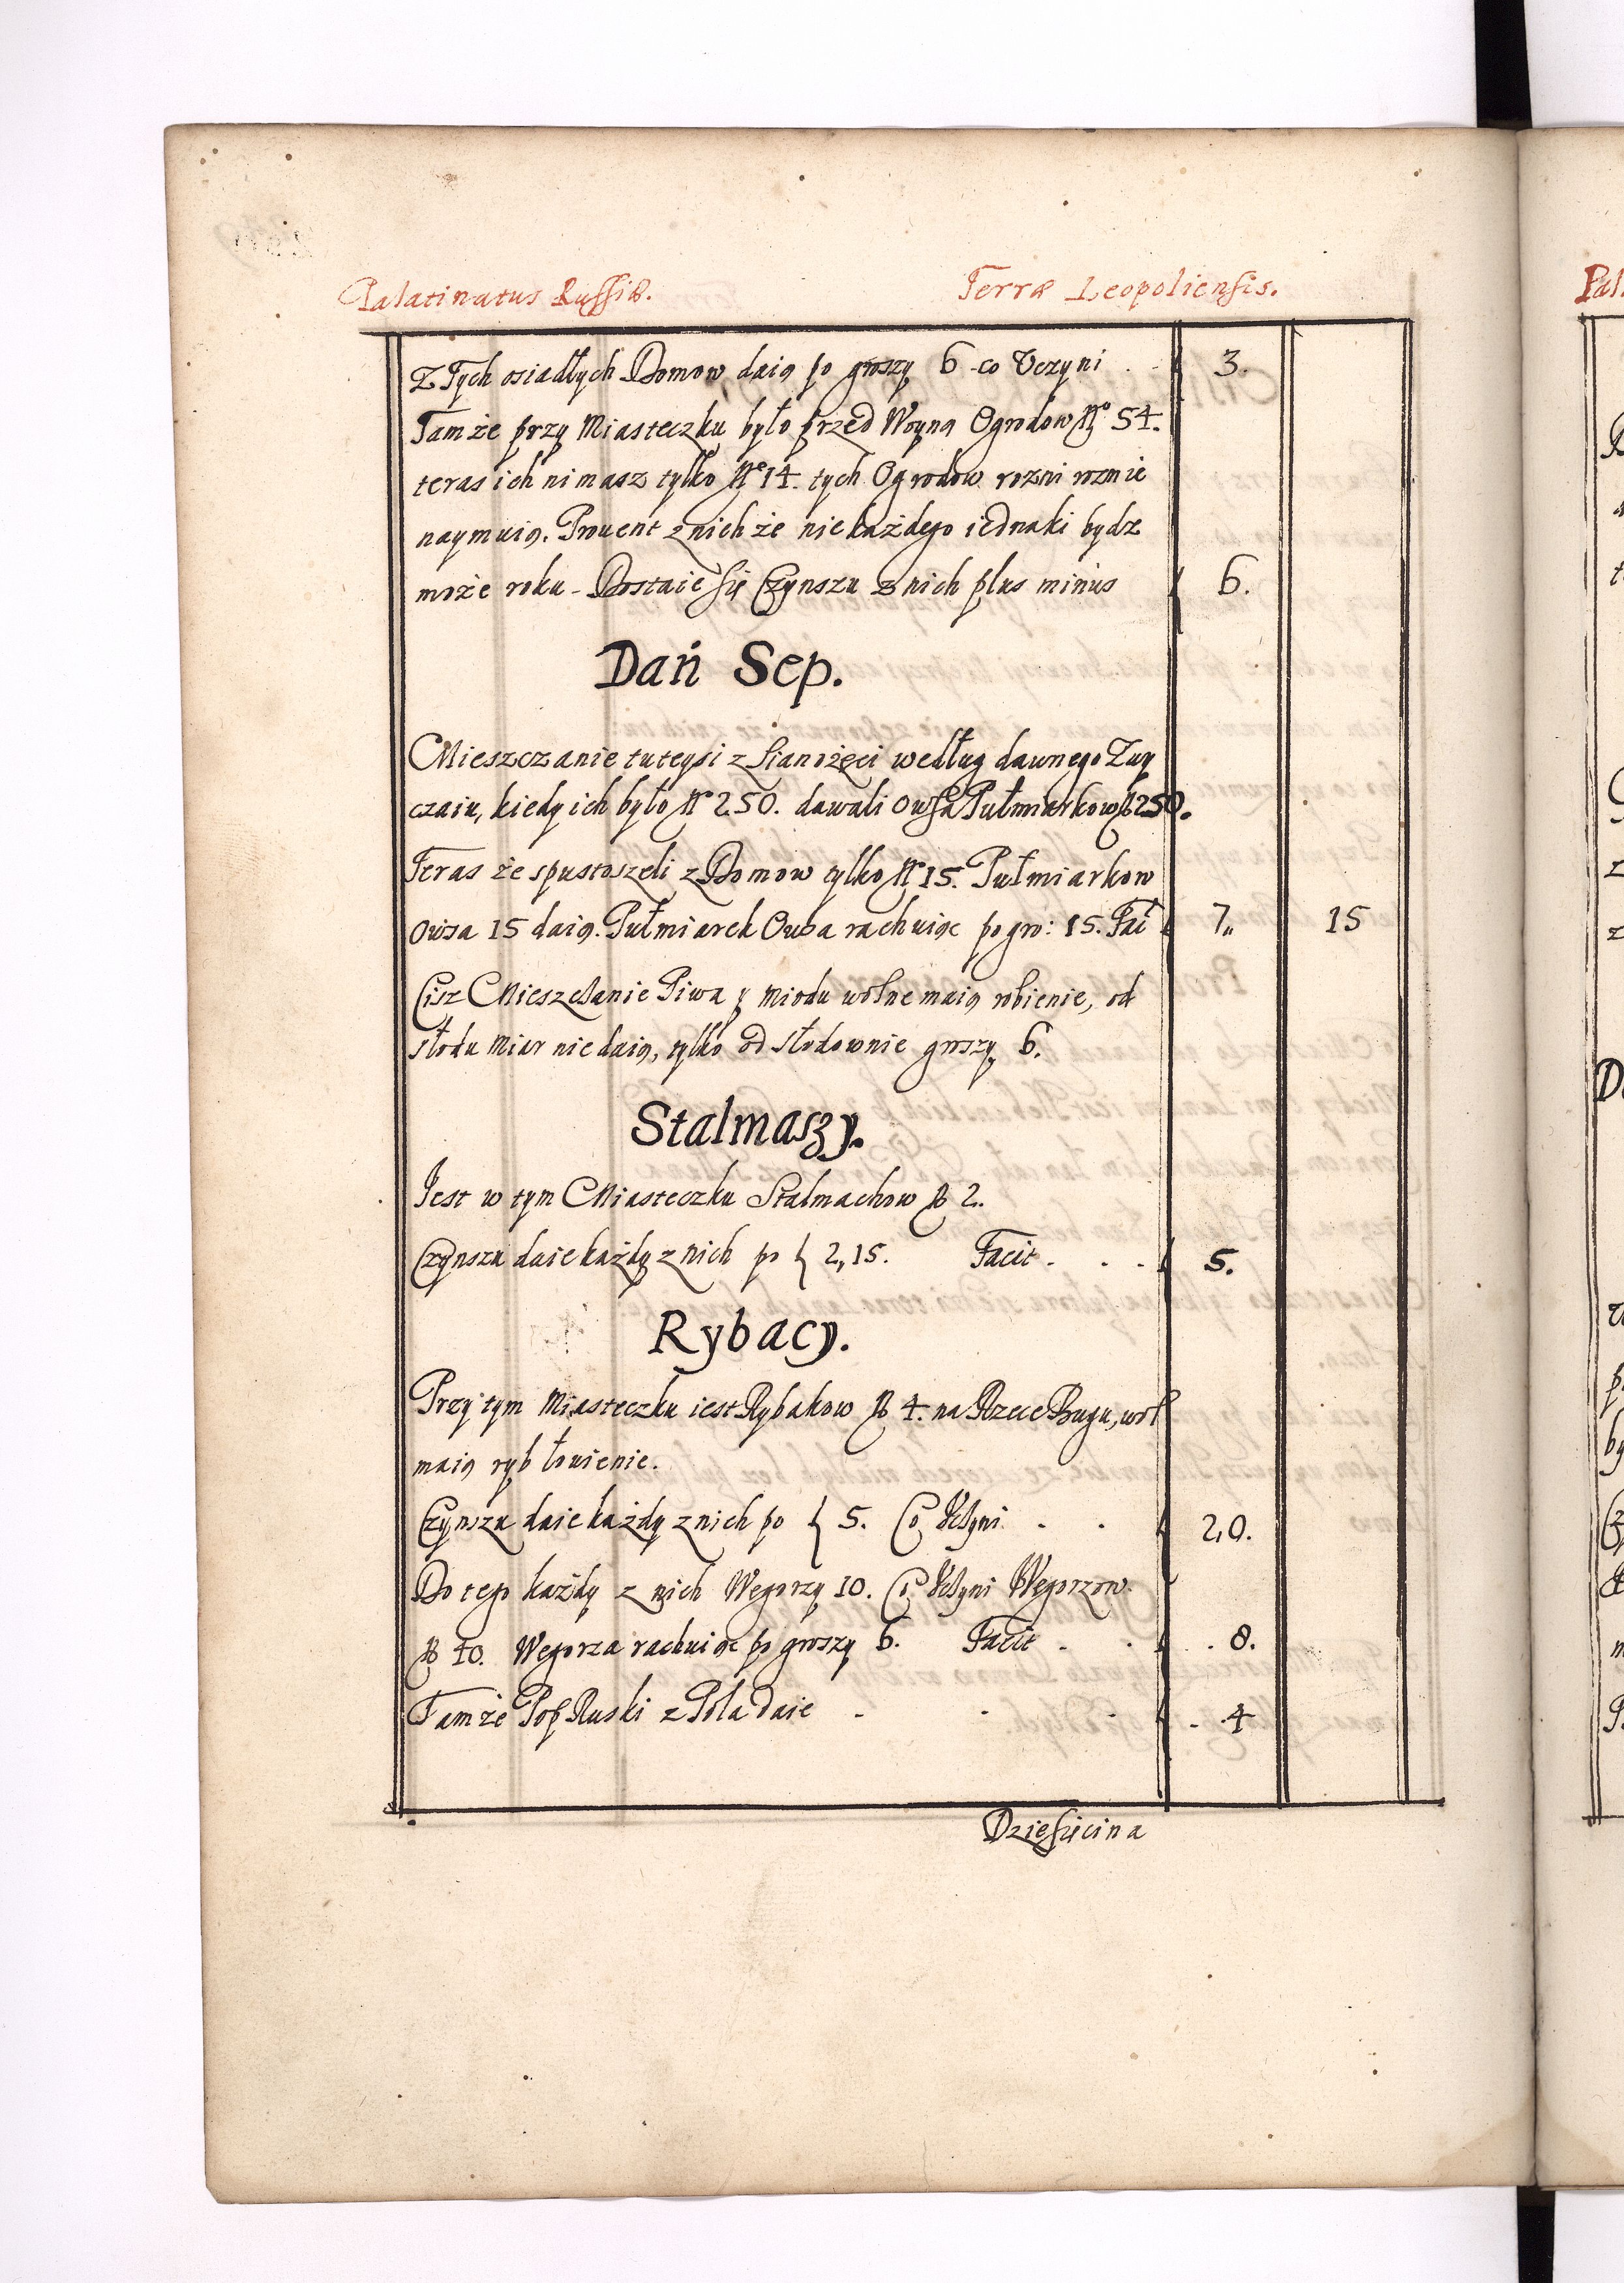 Palatinatus Russiæ. Terræ Leopoliensis.
Z Tych osiadłych Domow daią po groszy 6 co Uczyni . . 3.
Tamże przy Miasteczku było przed Woyną Ogrodow No 54.
teras ich nimasz tylko No 14. tych Ogrodow rozni roznie
naymuią. Prouent z nich że nie każdego iednaki bydz
może roku - Dostaie się Czynszu z nich plus minus 6.
Dań Sep.
Mieszczanie tuteysi z sianożęci według dawnego Zwy
czaiu, kiedy ich było No 250. dawali Owsa Pułmiarkow No 250.
Teras że spustoszeli z Domow tylko No 15. Pułmiarkow
Owsa 15 daią. Pułmiarek Owsa rachuiąc po gro: 15. Faci 7„ 15
Cisz Mieszczanie Piwa y Miodu wolne maią robienie, od
słodu Miar nie daią, tylko od słodownie groszy 6.
Stalmaszy.
Jest w tym Miasteczku Stalmachow No 2.
Czynszu daie każdy z nich po f 2„15. Facit . . . 5.
Rybacy.
Przy tym Miasteczku iest Rybakow No 4. na Rzece Bugu, wol
maią ryb łowienie.
Czynszu daie każdy z nich po f 5. Co Uczyni . . 20.
Do tego każdy z nich Węgorzy 10. Co Uczyni Węgorzow
No 40. Węgorza rachuiąc po groszy 6. Facit . . . 8.
Tamże Pop Ruski z Pola daie . . . . 4
Dziesięcina